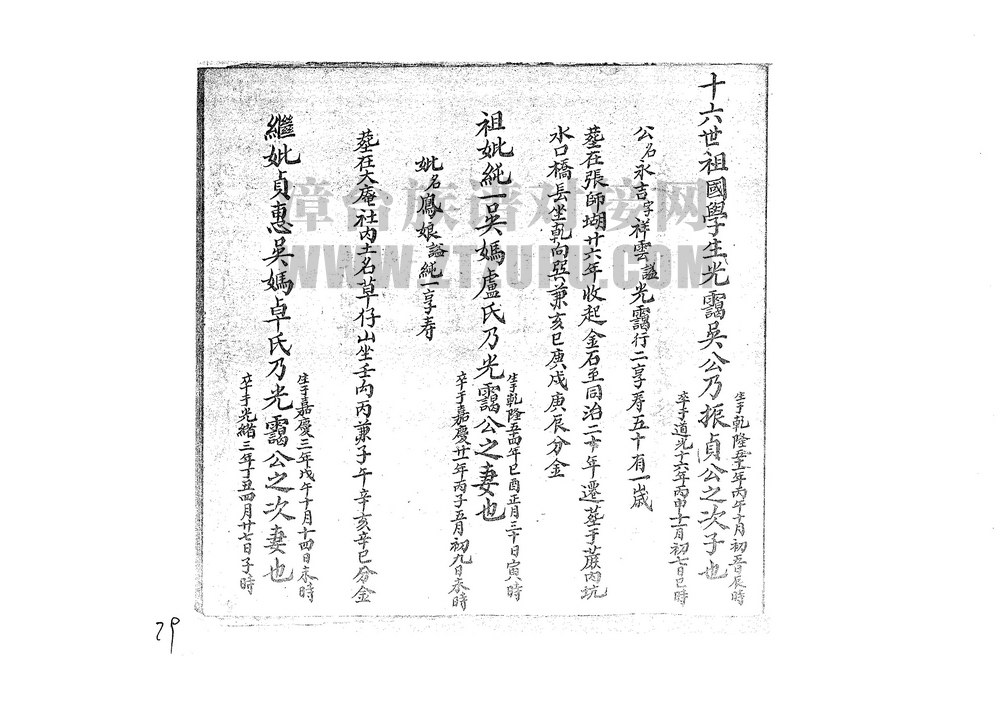 十六世祖國學生光靄吳公乃振貞公之次子也
生于乾隆五十一年丙午十月初五日辰時
卒于道光十六年丙申十一月初七日巳時
公名永吉字祥雲謚光靄行二享寿五十有一歲
塟在張師坳廿六年收起金石至同治二十年遷塟于蔟內坑
水口橋長坐乾向巽兼亥巳庚戍庚辰分金
祖妣純一吳媽盧氏乃光靄公之妻也
生于乾隆五十四年巳酉正月三十日寅時
卒于嘉慶廿一年丙子五月初九日未時
妣名鳳娘謚純一享寿
塟在大庵社內土名草仔山坐壬向丙兼子午辛亥辛巳分金
繼妣貞惠吳媽卓氏乃光靄公之次妻也
生于嘉慶三年戊午十月十四日未時
卒于光緒三年丁丑四月廿七日子時
漳台族谱对接网
WWW.ZTZUPU.COM
29